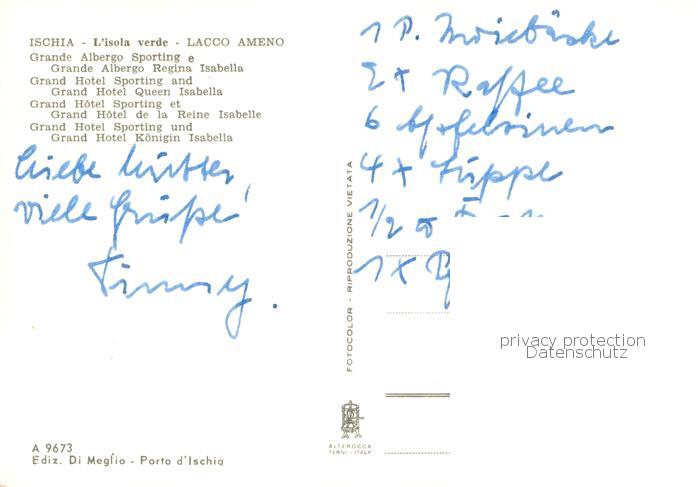 ISCHIA - L'isola verde - LACCO AMENO
Grande Albergo Sporting e
Grande Albergo Regina Isabella
Grand Hotel Sporting and
Grand Hotel Queen Isabella
Grand Hôtel Sporting et
Grand Hôtel de la Reine Isabelle
Grand Hotel Sporting und
Grand Hotel Königin Isabella
Liebe Mutter,
viele Grüße!
1 P. Zwiebäcke
2 + Kaffee
6 Apfelsinen
4 + Suppe
1/2
1 x
FOTOCOLOR - RIPRODUZIONE VIETATA
privacy protection
Datenschutz
ALTEROCCA
TERNI - ITALY
A 9673
Ediz. Di Meglio - Porto d'Ischia